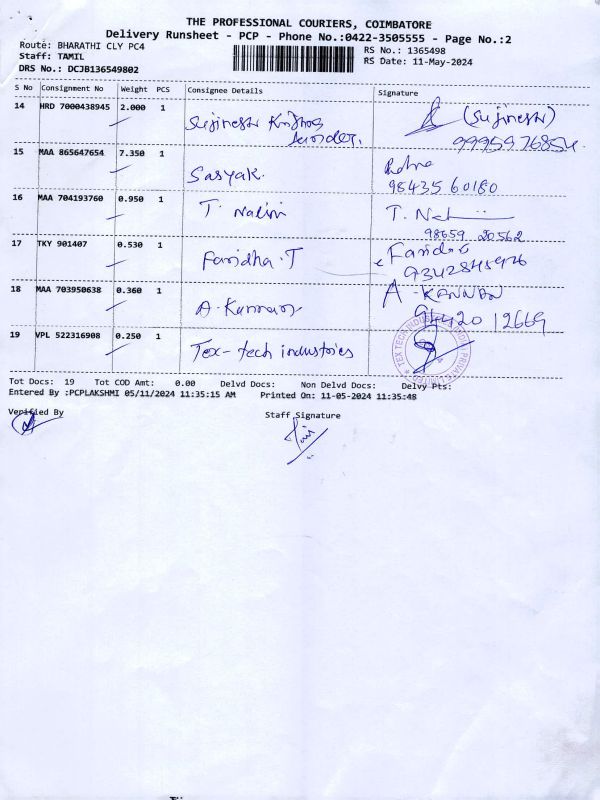 THE PROFESSIONAL COURIERS, COIMBATORE
Delivery Runsheet - PCP - Phone No.:0422-3505555 - Page No.:2
Route: BHARATHI CLY PC4
Staff: TAMIL
DRS No.: DCJB136549802
RS No.: 1365498
RS Date: 11-May-2024
S No Consignment No Weight PCS Consignee Details Signature
14 HRD 7000438945 2.000 1 Sujinesh (Sujinesh)
15 MAA 865647654 7.350 1 Sasyak.
98435 60180
16 MAA 704193760 0.950 1 T. Nalini T.
98659 20562
17 TKY 901407 0.530 1 Faridha.T
9342845926
18 MAA 703950638 0.360 1 A. Kannan A. KANNAN
94420 12669
19 VPL 522316908 0.250 1 Tex-tech industries
Tot Docs: 19 Tot COD Amt: 0.00 Delvd Docs: Non Delvd Docs: Delvy Pts:
Entered By :PCPLAKSHMI 05/11/2024 11:35:15 AM Printed On: 11-05-2024 11:35:48
Verified By Staff Signature